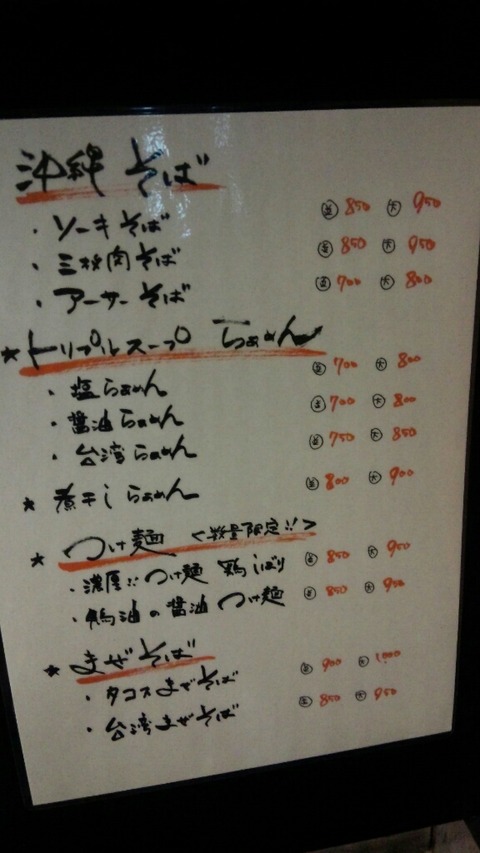 沖縄そば
・ソーキそば 並 850 大 950
・三枚肉そば 並 850 大 950
・アーサーそば 並 700 大 800
★トリプルスープ らぁめん
・塩らぁめん 並 700 大 800
・醤油らぁめん 並 700 大 800
・台湾らぁめん 並 750 大 850
★煮干しらぁめん 並 800 大 900
★つけ麺 <数量限定!!>
・濃厚!!つけ麺 鶏しぼり 並 850 大 950
・鴨油の醤油つけ麺 並 850 大 950
★まぜそば
・タコスまぜそば 並 900 大 1,000
・台湾まぜそば 並 850 大 950